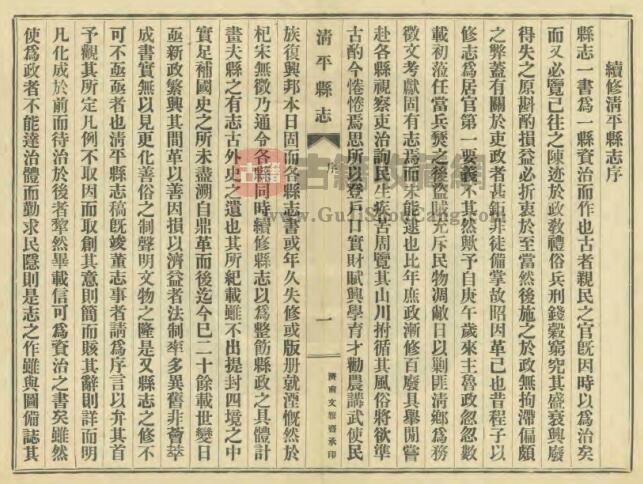 續修清平縣志序
縣志一書爲一縣資治而作也古者親民之官既因時以爲治矣
而又必覽已往之陳迹於政敎禮俗兵刑錢穀窮究其盛衰興廢
得失之原斟酌損益必折衷於至當然後施之於政無拘滯偏頗
之弊蓋有關於吏政者甚鉅非徒備掌故昭因革已也昔程子以
修志爲居官第一要義不其然歟予自庚午歲來主魯政忽忽數
載初蒞任當兵燹之後盜賊充斥民物凋敝日以剿匪淸鄕爲務
徵文考獻固有志焉而未能逮也比年庶政漸修百廢具舉閒嘗
赴各縣視察吏治詢民生疾苦周覽其山川拊循其風俗將欲準
古酌今惓惓焉思所以登戶口實財賦興學育才勸農講武使民
族復興邦本日固而各縣志書或年久失修或版册就湮慨然於
杞宋無徵乃通令各縣同時續修縣志以爲整飭縣政之具體計
畫夫縣之有志古外史之遺也其所紀載雖不出提封四境之中
實足補國史之所未盡溯自鼎革而後迄今已二十餘載世變日
亟新政繁興其間革以善因損以濟益者法制率多異舊非薈萃
成書實無以見更化善俗之制聲明文物之隆是又縣志之修不
可不亟亟者也淸平縣志稿既竣董志事者請爲序言以弁其首
予觀其所定凡例不取因而取創其意則簡而賅其辭則詳而明
凡化成於前而待治於後者犂然畢載信可爲資治之書矣雖然
使爲政者不能達治體而勤求民隱則是志之作雖與圖備誌其
清平縣志
序
一
濟南文雅齋承印
古籍收藏網
www.GuJiShouCang.com